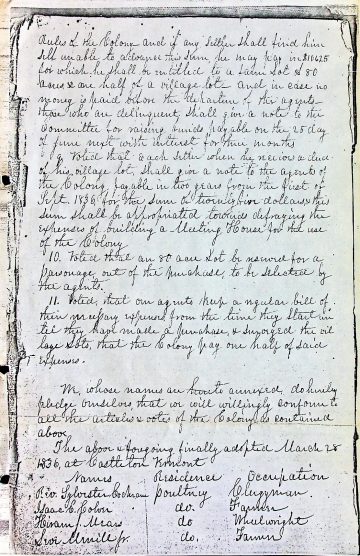 Rules of the Colony and if any settler shall find him
self unable to advance this sum, he may pay in $106.25
for which he shall be entitled to a farm lot of 80
acres & one half of a village lot. And in case no
money is paid before the departure of the agents
those who are delinquent shall give a note to the
Committee for raising funds, payable on the 25 day
of June next with interest for three months
9. Voted that each settler when he receives a deed
of his village lot, shall give a note to the agents of
the Colony, payable in two years from the first of
Sept. 1836, for the sum of twenty five dollars, this
sum shall be appropriated towards defraying the
expenses of building a Meeting House for the use
of the Colony
10. Voted that an 80 acre lot be reserved for a
Parsonage out of the purchase, to be selected by
the agents.
11. Voted, that our agents keep a regular bill of
their necessary expenses from the time they start un
til they have made a purchase, & surveyed the vil
lage lots, that the Colony pay one half of said
expenses.
We, whose names are hereto annexed, do hereby
pledge ourselves that we will willingly conform to
all the articles & votes of the Colony as contained
above
The above & foregoing finally adopted March 28
1836 at Castleton Vermont
Names Residence Occupation
Rev. Sylvester Cochran Poultney Clergyman.
Isaac C. do. Farmer
Hiram J. Mears do Wheelwright
Levi Merrill Jr. do. Farmer